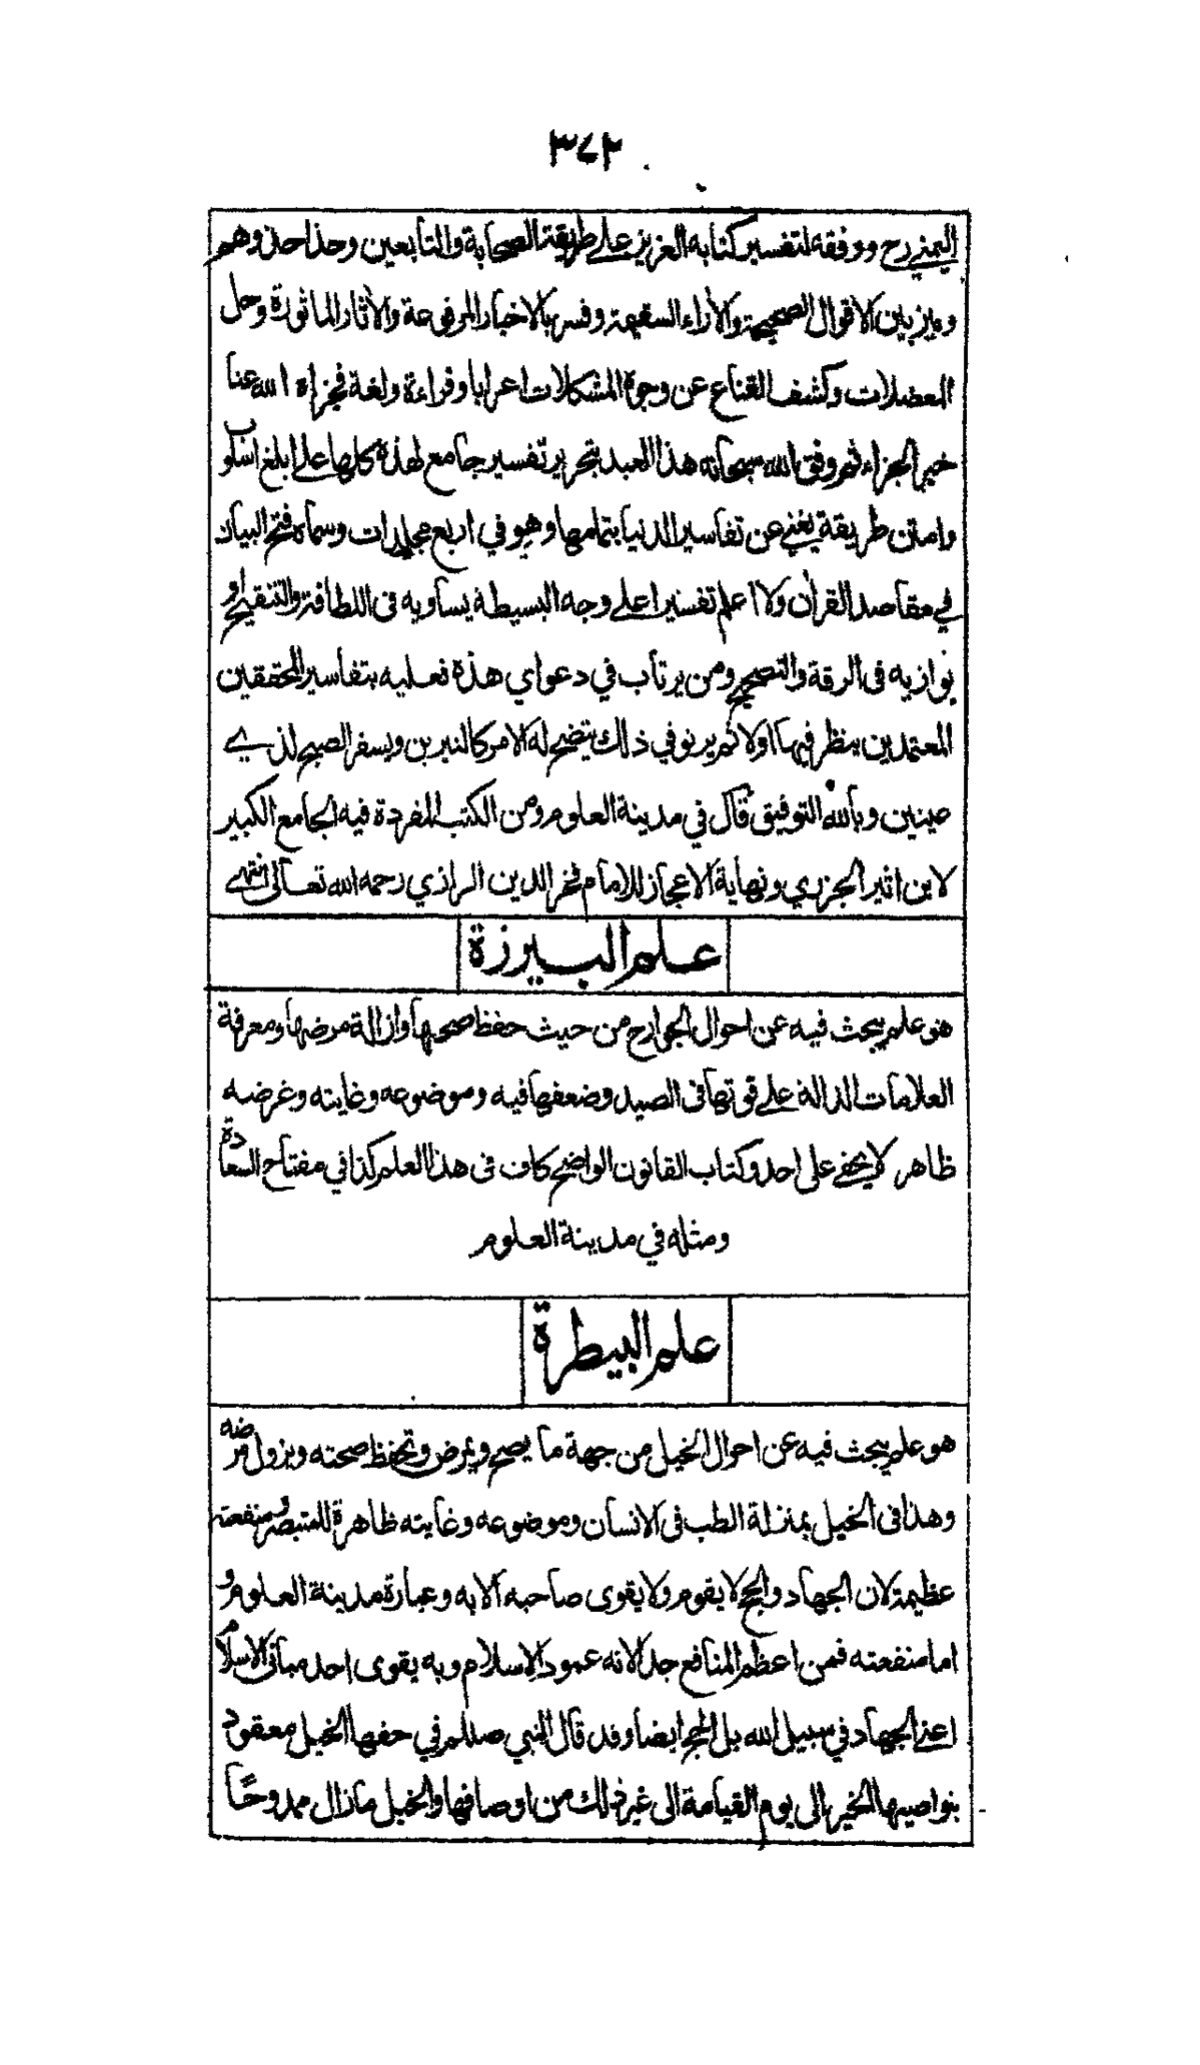 ٣٧٢
اليمني رح ووفقه لتفسير كتابه العزيز على طريقة الصحابة والتابعين وحذا حذوهم
وميز بين الاقوال الصحيحة والأراء السقيمة وفسر بالاخبار المرفوعة والأثار الماثورة وحل
المعضلات وكشف القناع عن وجوه المشكلات اعرابا وقراءة ولغة فجزاه الله عنا
خير الجزاء ثم وفق الله سبحانه هذا العبد بتحرير تفسير جامع لهذه كلها على ابلغ اسلوب
وامتن طريقة يغني عن تفاسير الدنيا بتمامها وهو في اربع مجلدات وسماه فتح البيان
في مقاصد القرأن ولا اعلم تفسيرا على وجه البسيطة يساويه في اللطافة والتنقيح او
يوازيه في الرقة والتصحيح ومن يرتاب في دعواي هذه فعليه بتفاسير المحققين
المعتمدين ينظر فيها اولا ثم يرنو في ذلك يتضح له الامر كالنيرين ويسفر الصبح لذي
عينين وبالله التوفيق قال في مدينة العلوم ومن الكتب المفردة فيه الجامع الكبير
لابن اثير الجزري ونهاية الاعجاز للامام فخر الدين الرازي رحمه الله تعالى انتهى
علم البيرزة
هو علم يبحث فيه عن احوال الجوارح من حيث حفظ صحتها وازالة مرضها ومعرفة
العلامات الدالة على قوتها في الصيد وضعفها فيه وموضوعه وغايته وغرضه
ظاهر لا يخفى على احد وكتاب القانون الواضح كاف في هذا العلم كذا في مفتاح السعادة
ومثله في مدينة العلوم
علم البيطرة
هو علم يبحث فيه عن احوال الخيل من جهة ما يصح ويمرض وتحفظ صحته ويزول مرضه
وهذا في الخيل بمنزلة الطب في الانسان وموضوعه وغايته ظاهرة للمتبصر ومنفعته
عظيمة لان الجهاد والحج لا يقوم ولا يقوى صاحبه الا به وعبارة مدينة العلوم و
اما منفعته فمن اعظم المنافع جدا لانه عمود الاسلام وبه يقوى احد مباني الاسلام
اعني الجهاد في سبيل الله بل الحج ايضا وقد قال النبي صللم في حقها الخيل معقود
بنواصيها الخير الى يوم القيامة الى غير ذلك من اوصافها والخيل مازال ممدوحًا